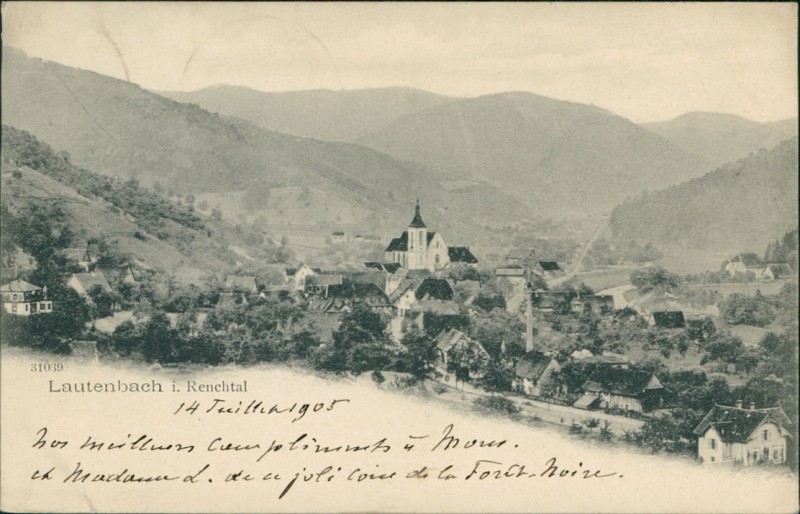 31039
Lautenbach i. Renchtal
14 Juillet 1905
nos meilleurs compliments à Mons.
et Madame L. de ce joli coin de la Forêt-Noire.